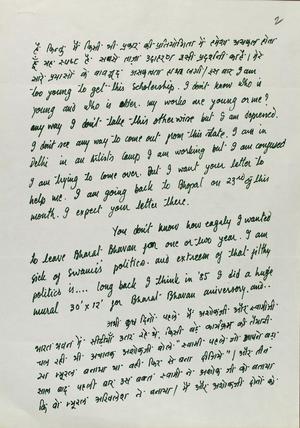 2
है किन्तु मैं किसी भी प्रकार की प्रतियोगिता में हमेशा असफल होता
हूँ यह स्पष्ट है सबसे ताज़ा उदाहरण इसी प्रदर्शनी का है। मेरे
सारे प्रयासों के बावजूद असफलता हाथ लगी। इस बार I am
too young to get this Scholarship. I don't know who is
young and who is older. my works are young or me?
any way I don't take this otherwise but I am depressed.
I don't see any way to come out from this state. I am in
Delhi in an artists camp I am working but I am confused
I am trying to come over. But I want your letter to
help me. I am going back to Bhopal on 23rd of this
month. I expect your letter there.
You don't know how eagely I wanted
to leave Bharat Bhavan for one or two year. I am
sick of Swami's politics. and extream of that filthy
politics is.... long back I think in '85 I did a huge
mural 30'x12' for Bharat Bhavan aniversary. and..
अभी कुछ दिनों पहले मैं अशोकजी और स्वामीजी
भारत भवन में सीढ़ियाँ उतर रहे थे किसी बड़े कार्यक्रम की तैयारी
चल रही थी अचानक अशोकजी बोले "स्वामी पहले जो आपने बड़ा
सा म्यूरल बनाया था वही फिर से बना दीजिये"। और तीन
साल बाद पहली बार उस वक्त स्वामी ने अशोकजी को बताया
कि वो म्यूरल अखिलेश ने बनाया। मैं और अशोकजी दोनों को